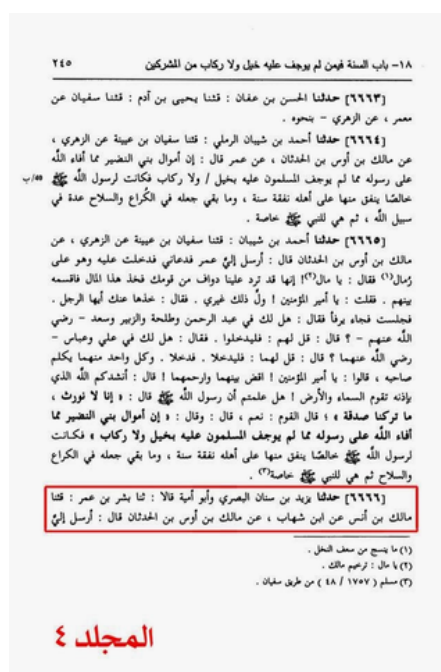 ١٨- باب السنة فيمن لم يوجف عليه خيل ولا ركاب من المشركين ٢٤٥
[٦٦٦٣] حدثنا الحسن بن عفان : قثنا يحيى بن آدم : قثنا سفيان عن
معمر ، عن الزهري - بنحوه .
[٦٦٦٤] حدثنا أحمد بن شيبان الرملي : قثنا سفيان بن عيينة عن الزهري ،
عن مالك بن أوس بن الحدثان ، عن عمر قال : إن أموال بني النضير مما أفاء الله
على رسوله مما لم يوجف المسلمون عليه بخيل / ولا ركاب فكانت لرسول الله ﷺ
خالصًا ينفق منها على أهله نفقة سنة ، وما بقي جعله في الكُراع والسلاح عدة في
سبيل الله ، ثم هي للنبي ﷺ خاصة .
[٦٦٦٥] حدثنا أحمد بن شيبان : قثنا سفيان بن عيينة عن الزهري ، عن
مالك بن أوس بن الحدثان قال : أرسل إليَّ عمر فدعاني فدخلت عليه وهو على
رُمال(١) فقال : يا مال(٢)! إنها قد ترد علينا دواف من قومك فخذ هذا المال فاقسمه
بينهم . فقلت : يا أمير المؤمنين ! ولِّ ذلك غيري . فقال : خذها عنك أيها الرجل .
فجلست فجاء يرفأ فقال : هل لك في عبد الرحمن وطلحة والزبير وسعد - رضي
الله عنهم - ؟ قال : قل لهم : فليدخلوا . فقال : هل لك في علي وعباس -
رضي الله عنهما ؟ قال : قل لهما : فليدخلا . فدخلا . وكل واحد منهما يكلم
صاحبه ، قالوا : يا أمير المؤمنين ! اقض بينهما وارحمهما ! قال : أنشدكم الله الذي
بإذنه تقوم السماء والأرض ! هل علمتم أن رسول الله ﷺ قال : « إنا لا نورث ،
ما تركنا صدقة » ؛ قال القوم : نعم ، قال : وقال : « إن أموال بني النضير مما
أفاء الله على رسوله مما لم يوجف المسلمون عليه بخيل ولا ركاب » فكانت
لرسول الله ﷺ خالصًا ينفق منها على أهله نفقة سنة ، وما بقي جعله في الكراع
والسلاح ثم هي للنبي ﷺ خاصة(٣) .
[٦٦٦٦] حدثنا يزيد بن سنان البصري وأبو أمية قالا : ثنا بشر بن عمر : قثنا
مالك بن أنس عن ابن شهاب ، عن مالك بن أوس بن الحدثان قال : أرسل إليَّ
(١) ما ينسج من سعف النخل .
(٢) يا مال : ترخيم مالك .
(٣) مسلم ( ١٧٥٧ / ٤٨ ) من طريق سفيان .
المجلد ٤